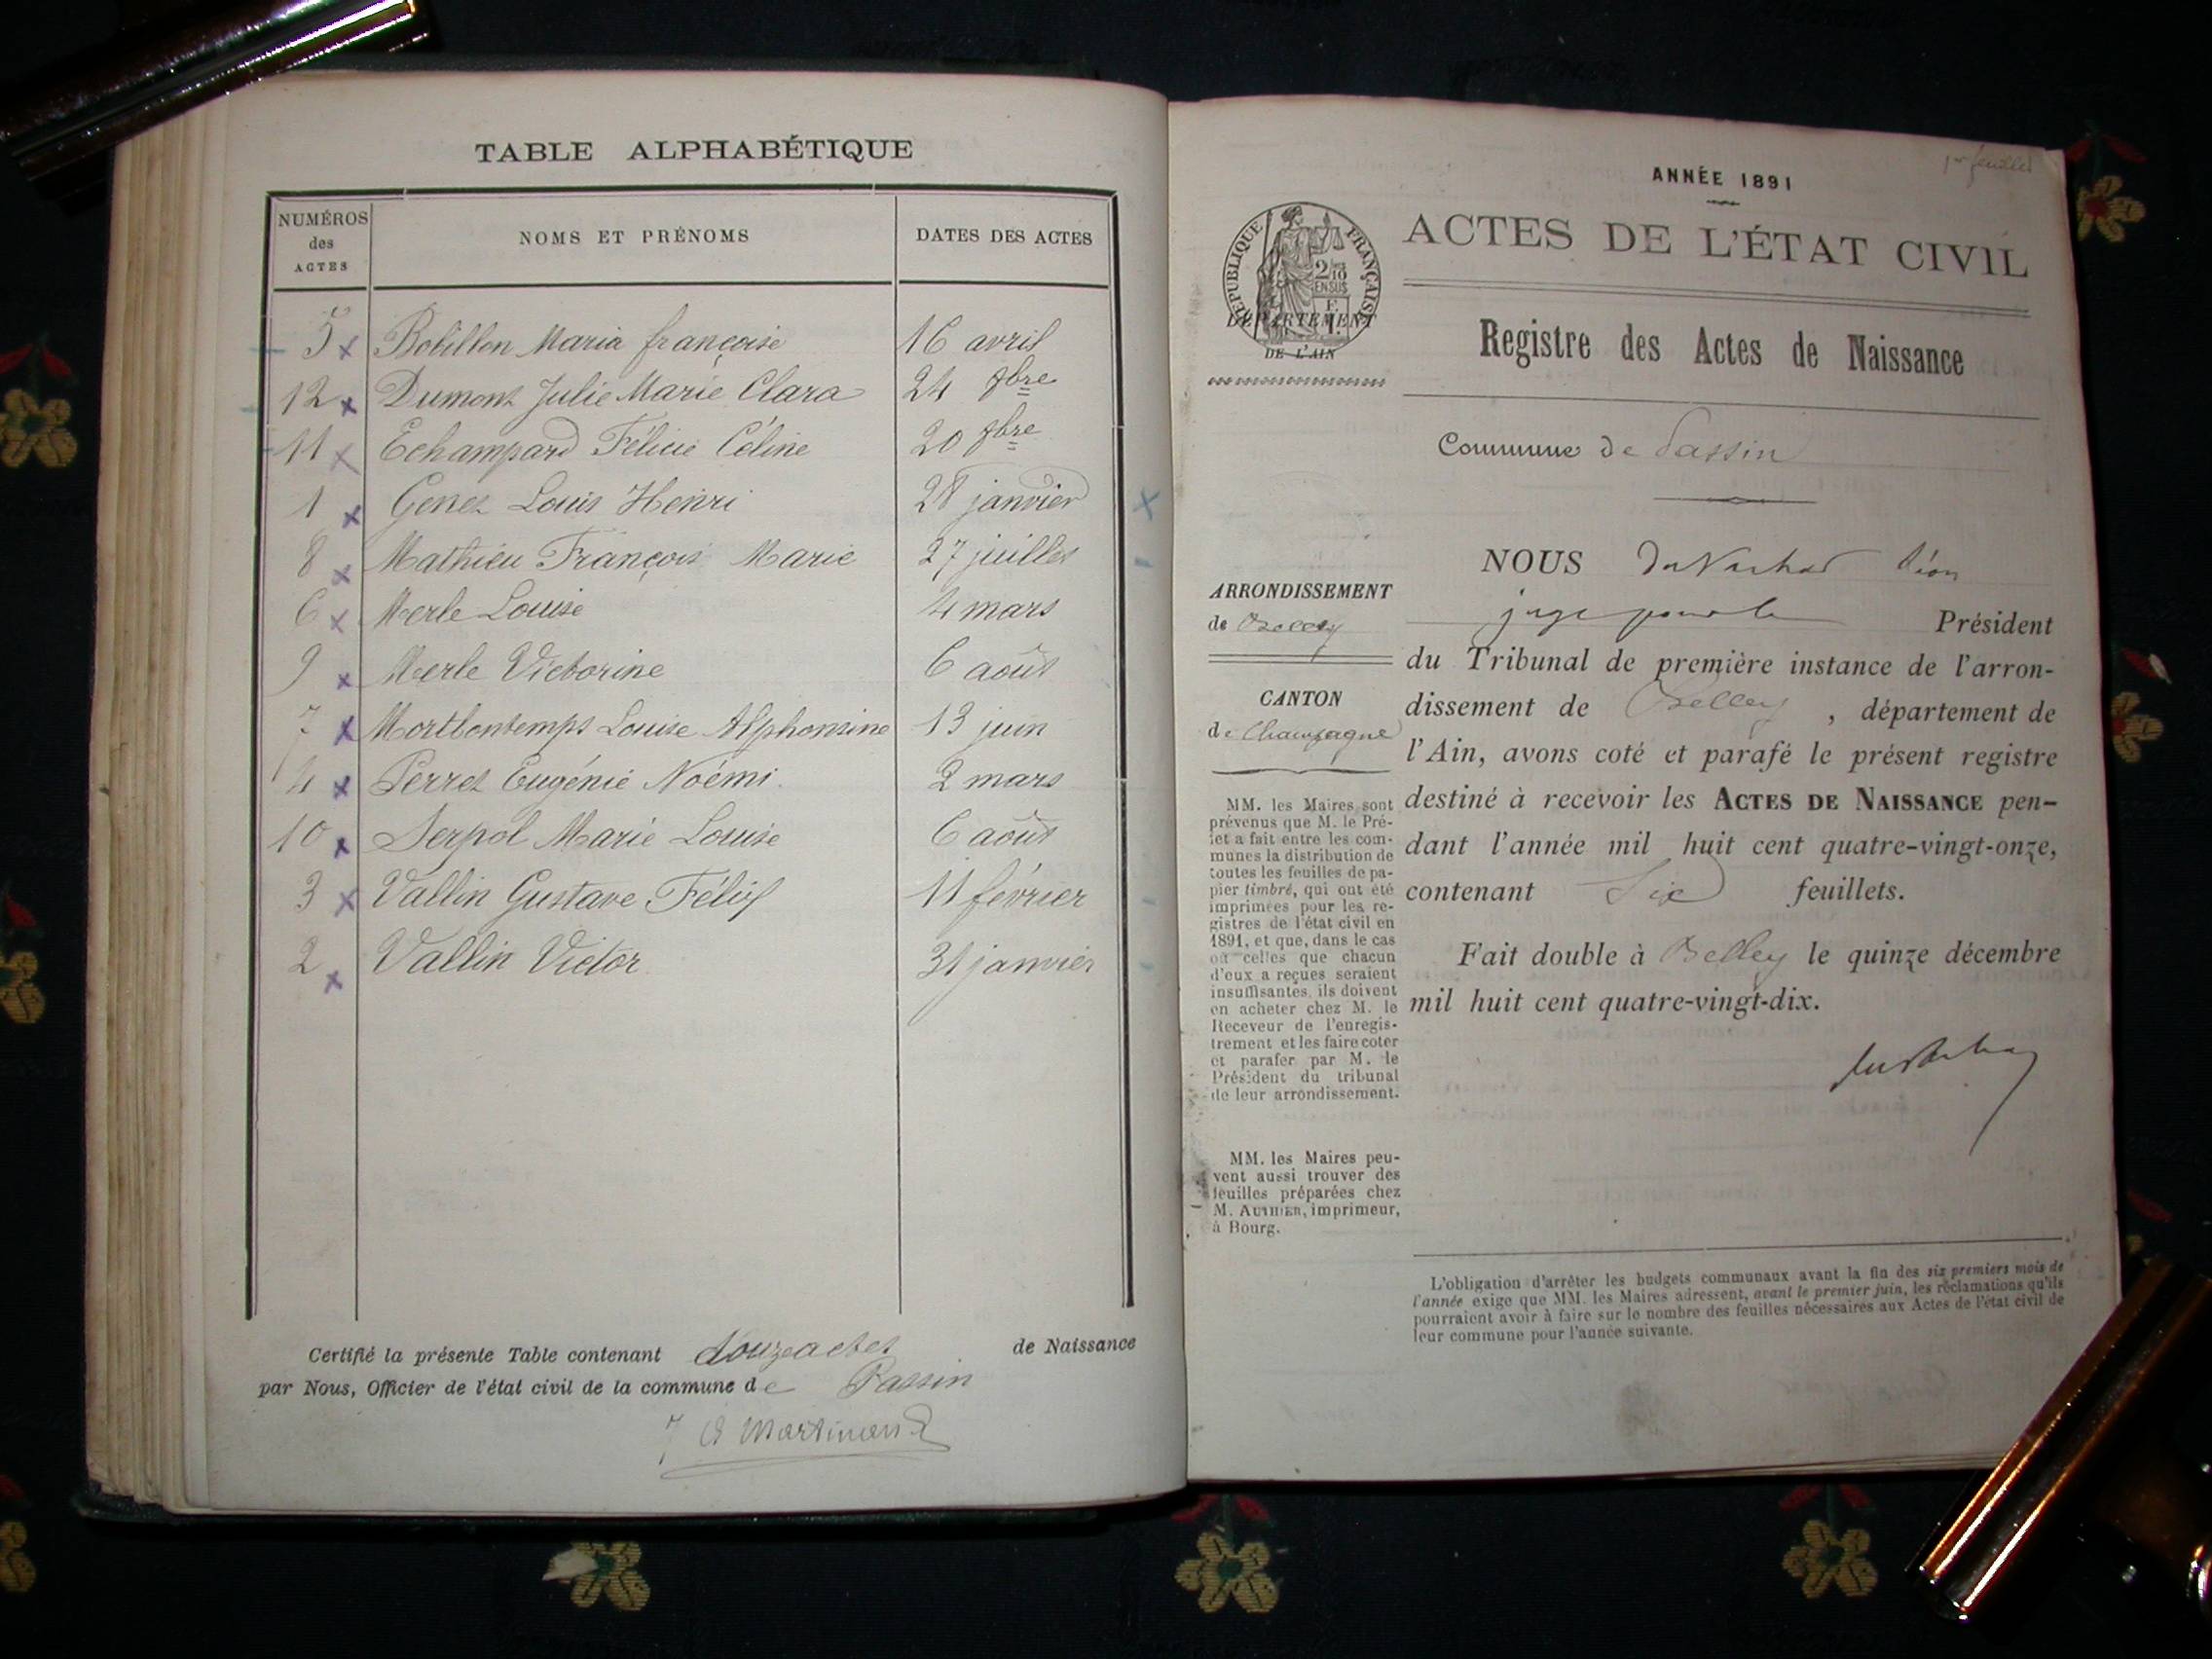 TABLE ALPHABÉTIQUE
NUMÉROS des ACTES
NOMS ET PRÉNOMS
DATES DES ACTES
5 x Bobillon Maria françoise 16 avril
12 x Dumont Julie Marie Clara 24 9bre
11 x Echampard Félicie Céline 20 9bre
1 x Genet Louis Henri 28 janvier x
8 x Mathieu François Marie 27 juillet
6 x Merle Louise 4 mars
9 x Merle Victorine 6 août
7 x Mortbontemps Louise Alphonsine 13 juin
4 x Perret Eugénie Noémi 2 mars
10 x Serpol Marie Louise 6 août
3 x Vallin Gustave Félix 11 février
2 x Vallin Victor 31 janvier
Certifié la présente Table contenant douze actes de Naissance
par Nous, Officier de l'état civil de la commune de Passin
Martinand
1er feuillet
ANNÉE 1891
ACTES DE L'ÉTAT CIVIL
RÉPUBLIQUE FRANÇAISE
2/10
EN SUS
DÉPARTEMENT
DE L'AIN
Registre des Actes de Naissance
Commune de Passin
ARRONDISSEMENT
de Belley
CANTON
de Champagne
MM. les Maires sont
prévenus que M. le Pré-
fet a fait entre les com-
munes la distribution de
toutes les feuilles de pa-
pier timbré, qui ont été
imprimées pour les re-
gistres de l'état civil en
1891, et que, dans le cas
où celles que chacun
d'eux a reçues seraient
insuffisantes, ils doivent
en acheter chez M. le
Receveur de l'enregis-
trement et les faire coter
et parafer par M. le
Président du tribunal
de leur arrondissement.
MM. les Maires peu-
vent aussi trouver des
feuilles préparées chez
M. AUTHIER, imprimeur,
à Bourg.
NOUS Léon
juge pour le Président
du Tribunal de première instance de l'arron-
dissement de Belley, département de
l'Ain, avons coté et parafé le présent registre
destiné à recevoir les ACTES DE NAISSANCE pen-
dant l'année mil huit cent quatre-vingt-onze,
contenant Six feuillets.
Fait double à Belley le quinze décembre
mil huit cent quatre-vingt-dix.
L'obligation d'arrêter les budgets communaux avant la fin des six premiers mois de
l'année exige que MM. les Maires adressent, avant le premier juin, les réclamations qu'ils
pourraient avoir à faire sur le nombre des feuilles nécessaires aux Actes de l'état civil de
leur commune pour l'année suivante.